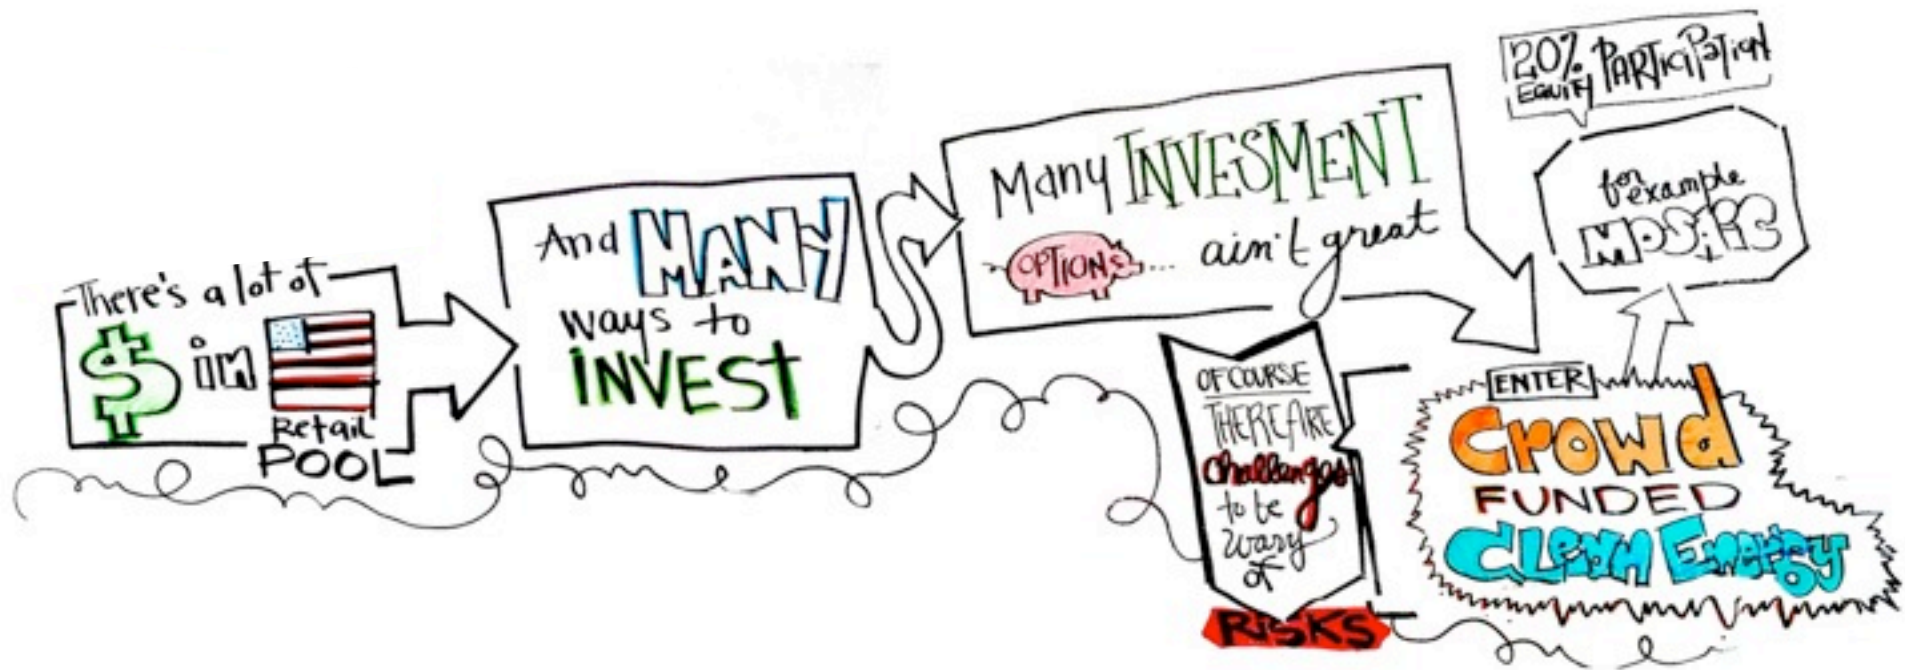 There's a lot of
$ in
Retail
POOL
And MANY
ways to
INVEST
Many INVESMENT
OPTIONS... ain't great
OF COURSE
THERE ARE
challenges
to be
wary
of
RISKS
ENTER
Crowd
FUNDED
CLEAN Energy
for
example
MOSAIC
20% PARTICIPATION
EQUITY